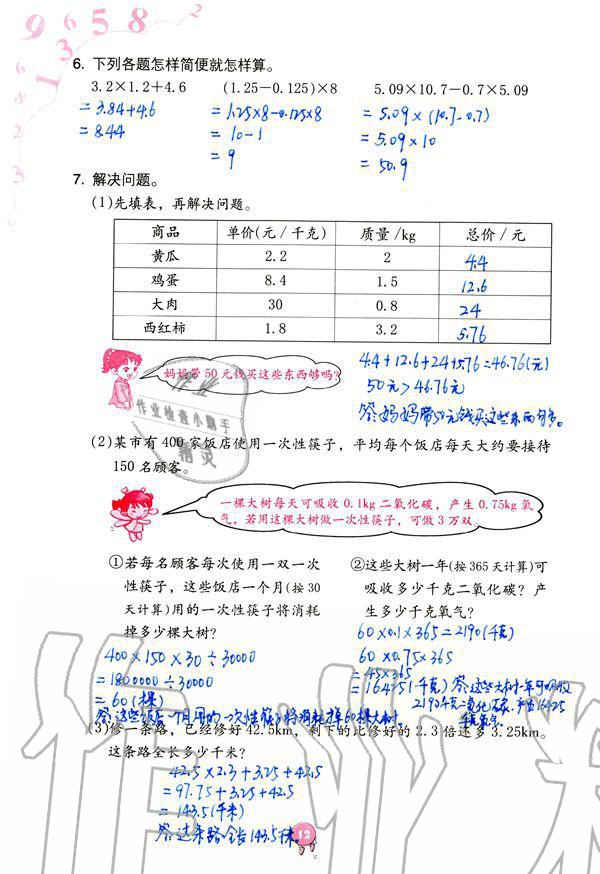 9 3 5 8 2
6 1
8
2
3
6. 下列各题怎样简便就怎样算。
3.2×1.2+4.6 (1.25−0.125)×8 5.09×10.7−0.7×5.09
=3.84+4.6 =1.25×8−0.125×8 =5.09×(10.7−0.7)
=8.44 =10−1 =5.09×10
=9 =50.9
7. 解决问题。
(1)先填表，再解决问题。
商品 单价(元/千克) 质量/kg 总价/元
黄瓜 2.2 2 4.4
鸡蛋 8.4 1.5 12.6
大肉 30 0.8 24
西红柿 1.8 3.2 5.76
4.4+12.6+24+5.76=46.76(元)
妈妈带50元钱买这些东西够吗?
50元>46.76元
答:妈妈带50元钱买这些东西够。
作业检查小助手
精灵
(2)某市有400家饭店使用一次性筷子，平均每个饭店每天大约要接待
150名顾客。
一棵大树每天可吸收0.1kg二氧化碳，产生0.75kg氧
气，若用这棵大树做一次性筷子，可做3万双。
①若每名顾客每次使用一双一次
性筷子，这些饭店一个月(按30
天计算)用的一次性筷子将消耗
掉多少棵大树?
400×150×30÷30000
=1800000÷30000
=60(棵)
答:这些饭店一个月用的一次性筷子将消耗掉60棵大树.
②这些大树一年(按365天计算)可
吸收多少千克二氧化碳? 产
生多少千克氧气?
60×0.1×365=2190(千克)
60×0.75×365
=45×365
=16425(千克) 答:这些大树一年可吸收
2190千克二氧化碳.产生16425
千克氧气.
(3)修一条路，已经修好42.5km，剩下的比修好的2.3倍还多3.25km。
这条路全长多少千米?
42.5×2.3+3.25+42.5
=97.75+3.25+42.5
=143.5(千米)
答:这条路全长143.5千米.
12
作业精